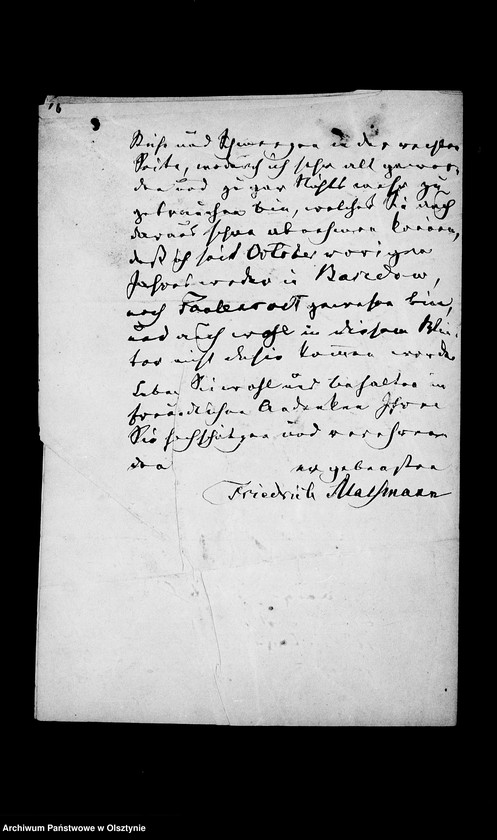 76
Stiche und Schmerzen in der rechten
Seite, wodurch ich sehr alt gewor-
den und zu gar Nichts mehr zu
gebrauchen bin, welches Sie auch
daraus schon abnehmen können,
daß ich seit October vorigen
Jahres weder in Basedow,
noch Faulenrost gewesen bin,
und auch wohl in diesem Win-
ter nicht dahin kommen werde.
Leben Sie wohl und behalten im
freundlichen Andenken Ihren
Sie hochschätzen und verehren
den ergebensten
Friedrich Maßmann
Archiwum Państwowe w Olsztynie